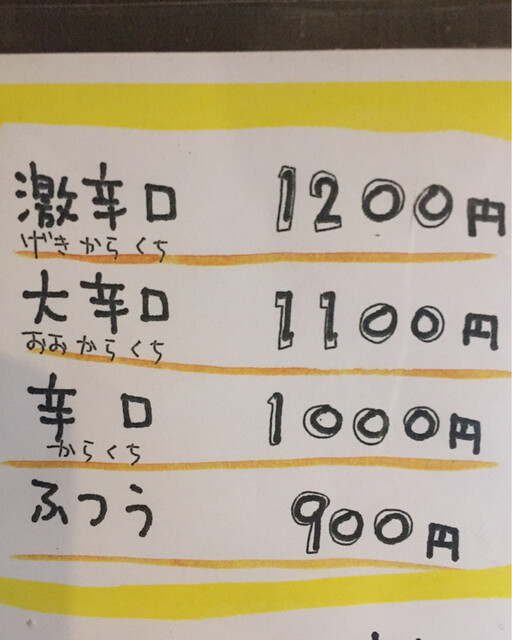 激辛口 1200円
げきからくち
大辛口 1100円
おおからくち
辛口 1000円
からくち
ふつう 900円